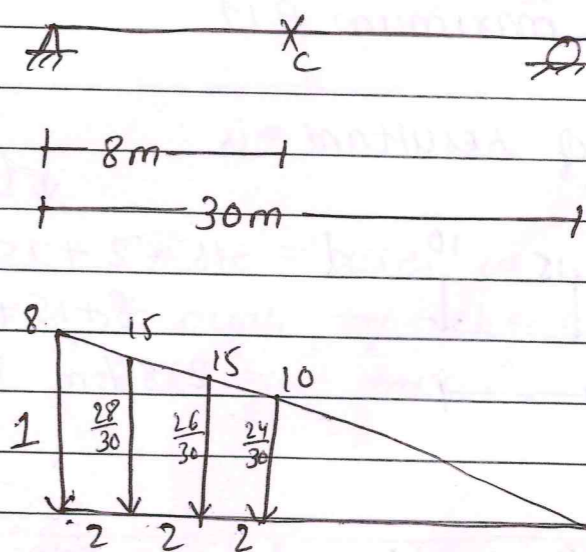 C
8m
30m
8 15 15 10
1 28/30 26/30 24/30
2 2 2